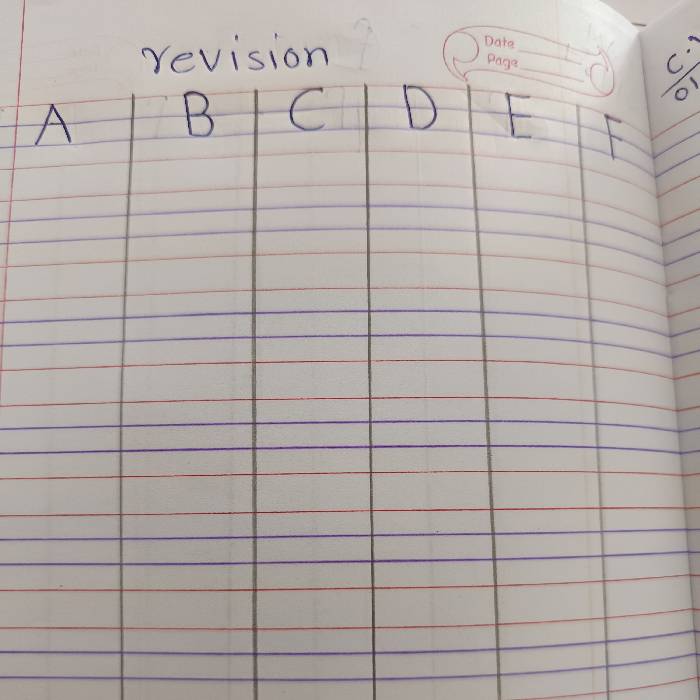 revision
Date
Page
A B C D E F